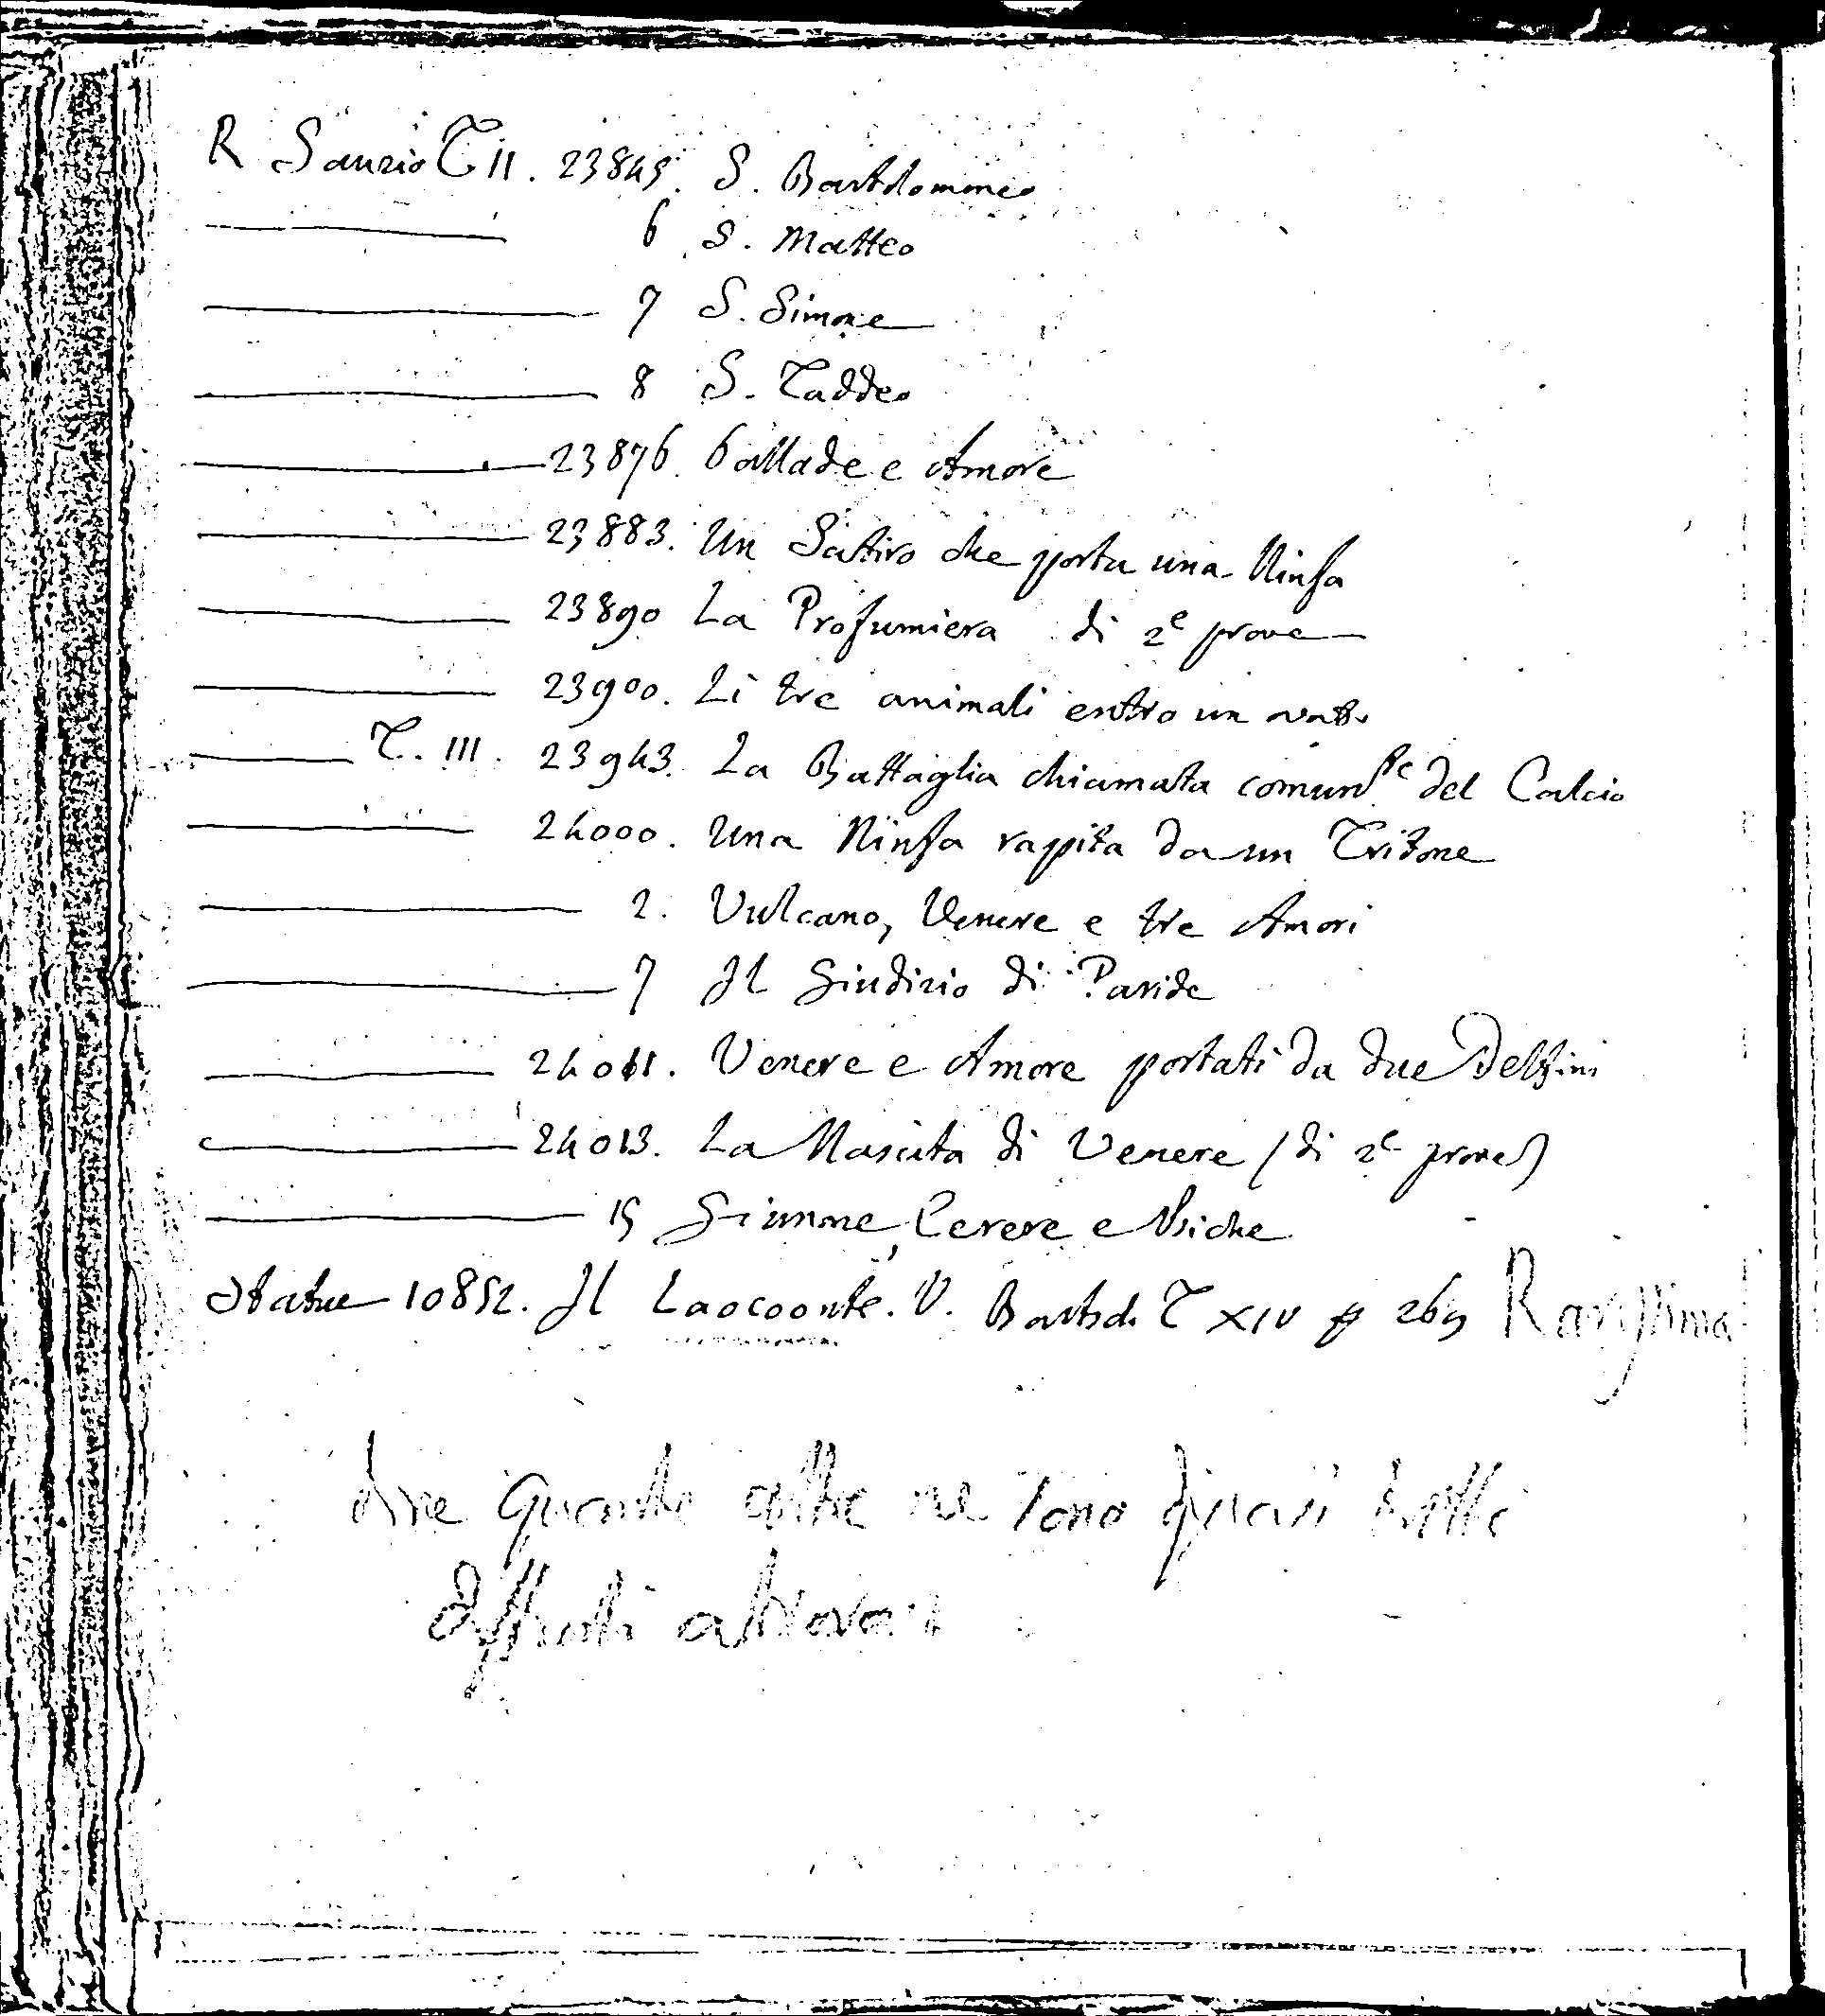 R Sanzio T II. 23845. S. Bartolommeo
6 S. Matteo
7 S. Simone
8 S. Taddeo
23876. Pallade e Amore
23883. Un Satiro che porta una Ninfa
23890 La Profumiera di 2e prove
23900. Li tre animali entro un
T. III. 23943. La Battaglia chiamata comunte del Calcio
24000. Una Ninfa rapita da un Tritone
2. Vulcano, Venere e tre Amori
7 Il Giudizio di Paride
24011. Venere e Amore portati da due Delfini
24013. La Nascita di Venere (di 2e prove)
15 Giunone, Cerere e Psiche
Statue 10852. Il Laocoonte. V. Bartsch T XIV p 269 Rarissima
altre ne sono quasi tutte